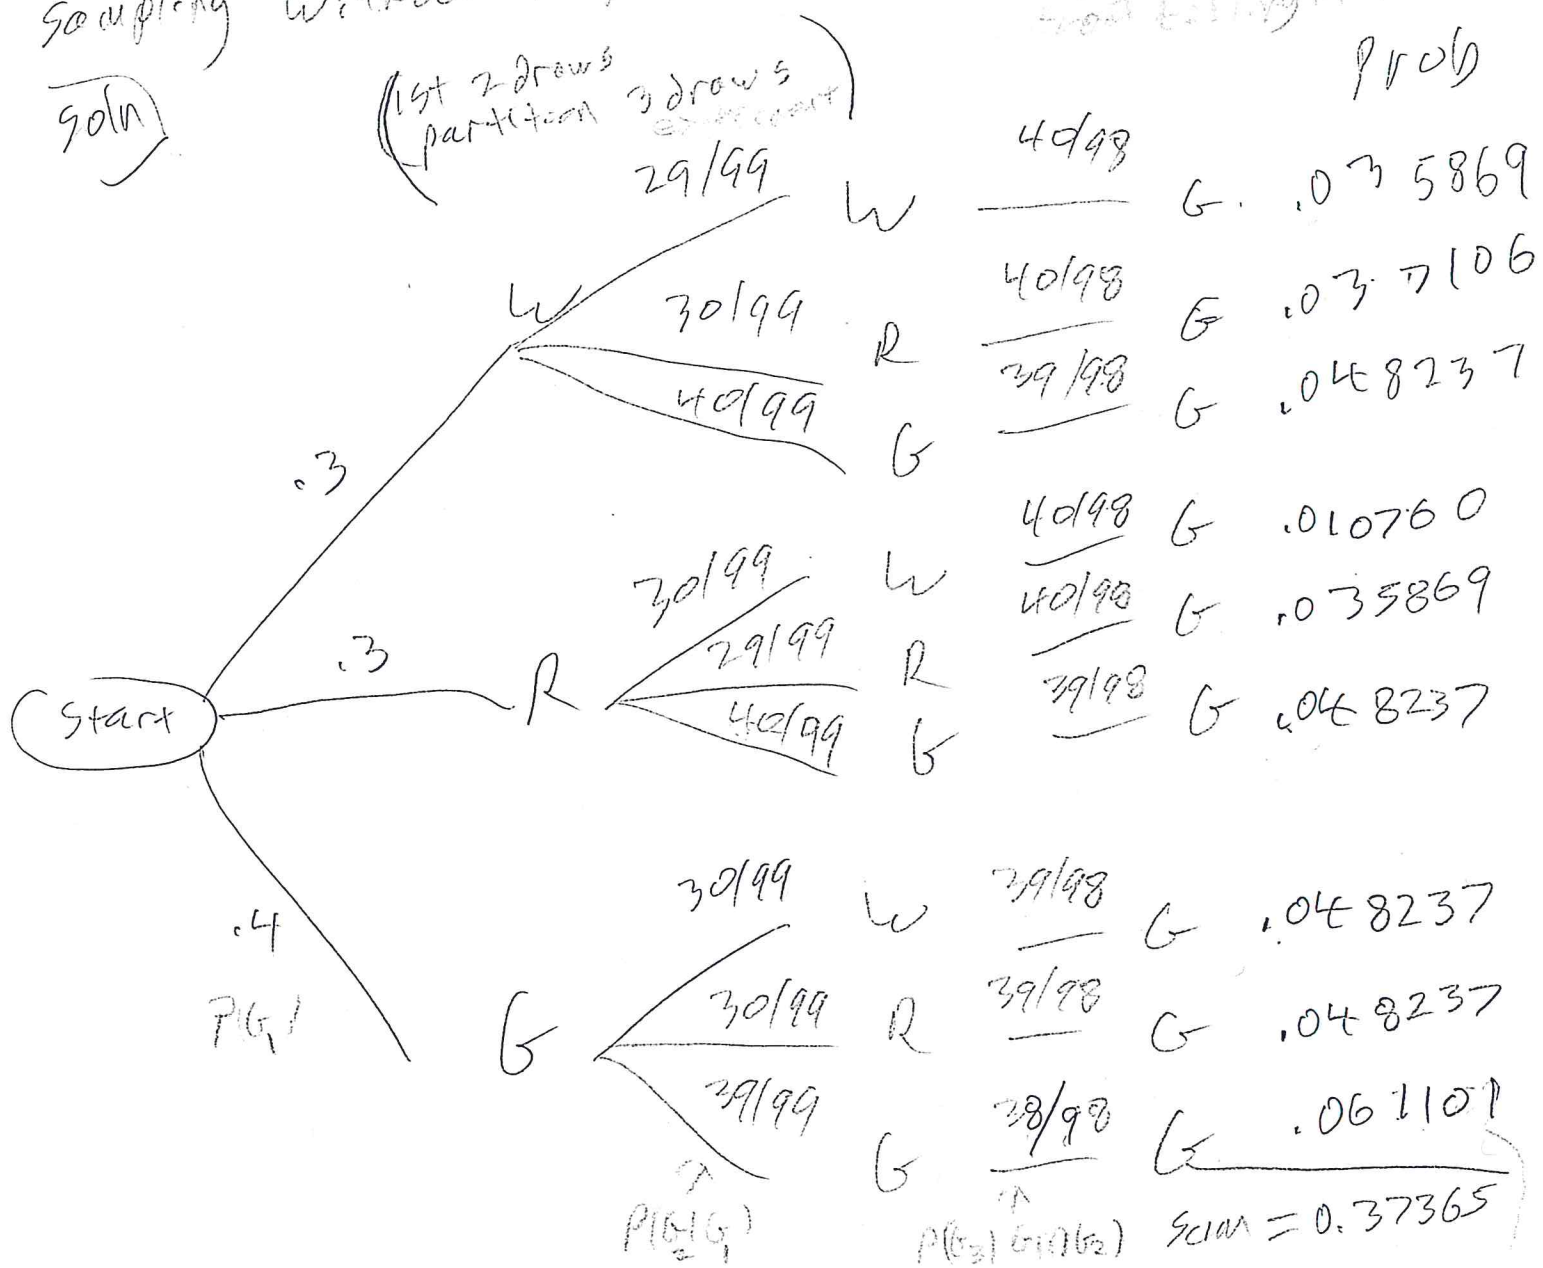 Sampling
Prob
Soln
(1st 2 draws
partition 3 draws
)
29/99 W 40/98 G .035869
W 30/99 R 40/98 G .037106
40/99 G 39/98 G .048237
.3
30/99 W 40/98 G .010760
.3 R 29/99 R 40/98 G .035869
Start 40/99 G 39/98 G .048237
30/99 W 39/98 G .048237
.4
P(G1) G 30/99 R 39/98 G .048237
39/99 G 38/98 G .061101
↑ ↑
P(G2|G1) P(G3|G1∩G2) Sum = 0.37365